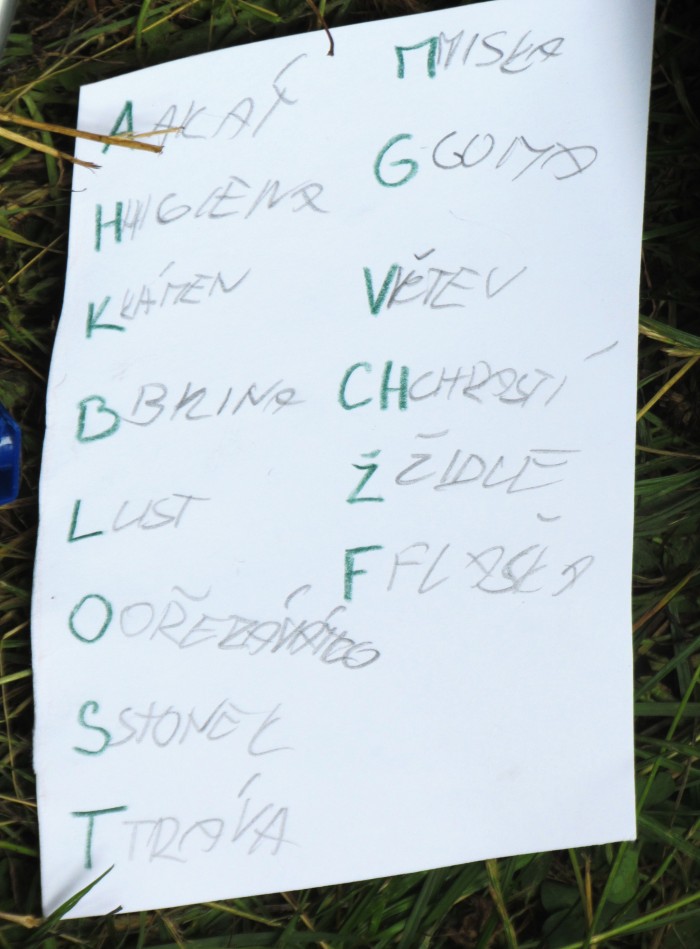 A
H HIGIÉNA
K KÁMEN
B BRINA
L LIST
O OŘEZÁVÁTKO
S STONEK
T TRÁVA
M MISKA
G GUMA
V VĚTEV
CH CHRASTÍ
Ž ŽIDLE
F FLAŠKA